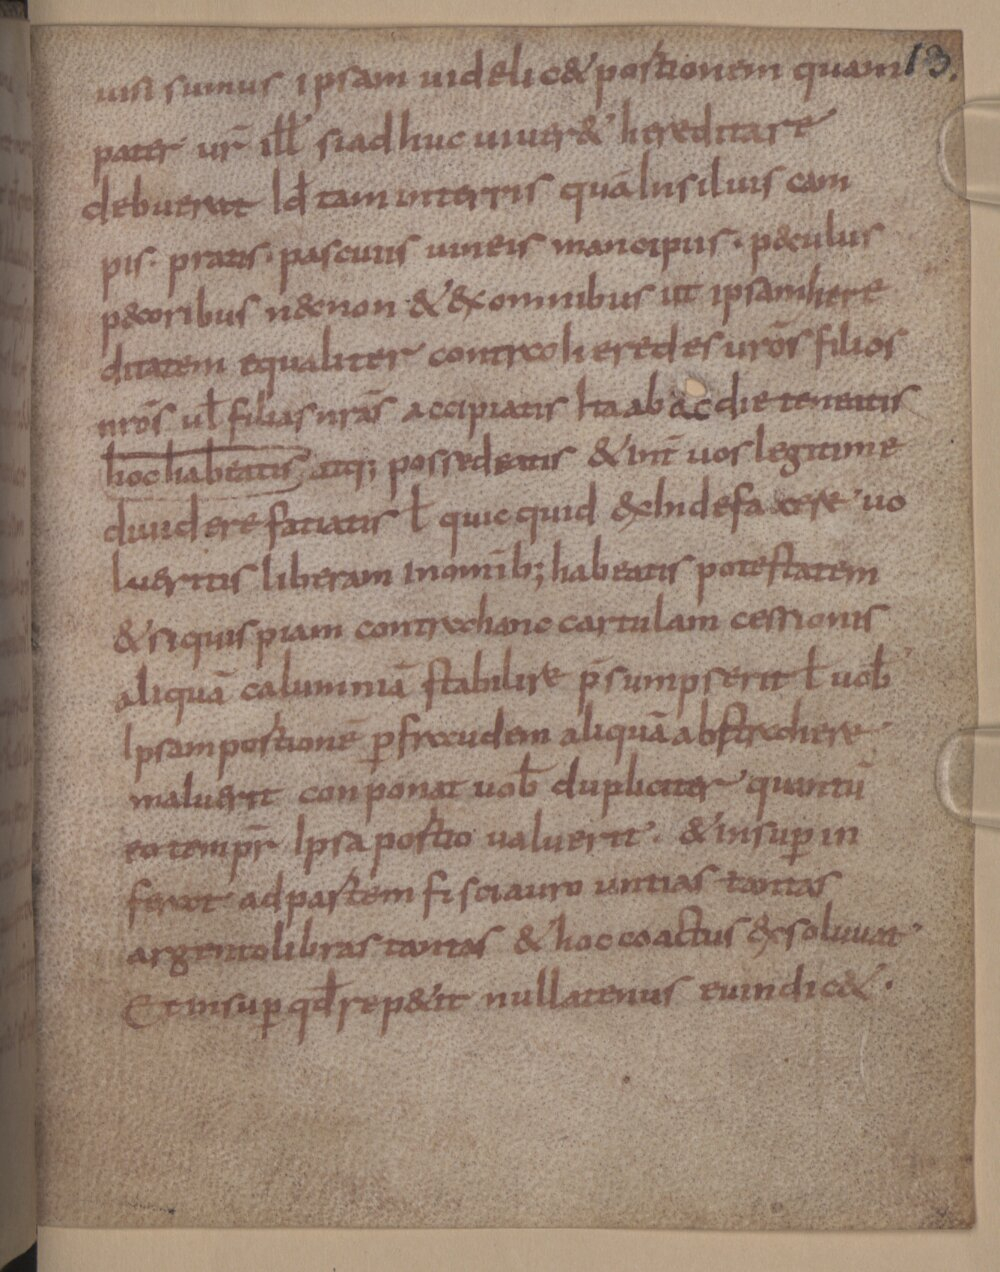 uisi sumus ipsam uidelic& portionem quam 13.
pater ur̄ ill̄ si adhuc uiuer& hereditare
debuerat id̄ tam in terris quā in siluis cam
pis· pratis· pascuiis uineis mancipiis· p&culiis
p&coribus n&non & &x omnibus ut ipsam here
ditatem equaliter contra coheredes urōs filios
nrōs ul̄ filias nrās accipiatis ita ab ac die teneatis
hoc habeatis atq; possedeatis & int̄ uos legitime
diuidere fatiatis l̄ quic quid &x inde facere uo
lueritis liberam in omīb; habeatis potestatem
& si quis piam contra hanc cartulam cessionis
aliquā calumniā stabilire p̄sumpserit l̄ uob̄
ipsam portionē p̱ fraudem aliquā abstrahere
maluerit conponat uob̄ dupliciter quantū
eo tempr̄ ipsa portio ualuerit· & insup̱ in
ferat ad partem fisci auro untias tantas
argento libras tantas & hoc coactus &xsoluat·
Et insup̱ qd̄ rep&it nullatenus euindic&·